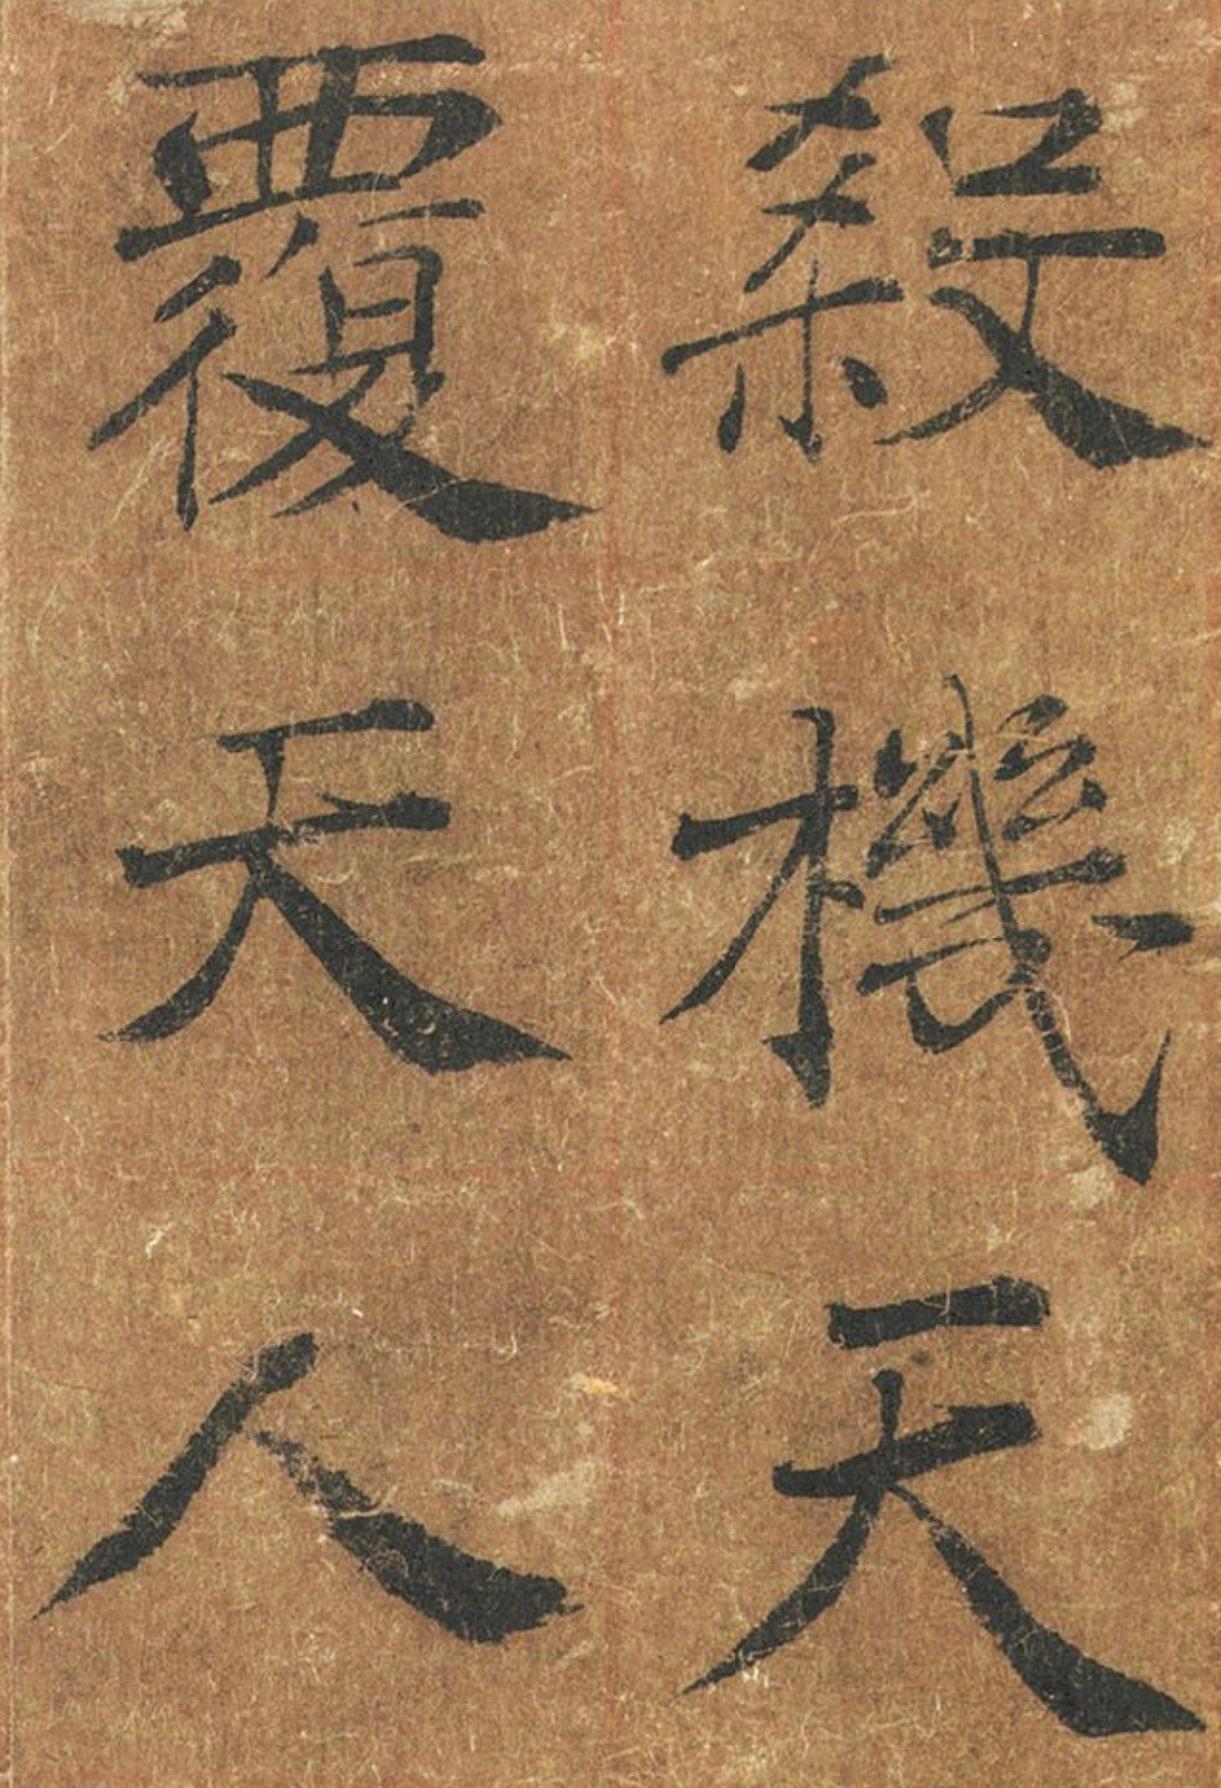 殺機天
覆天人